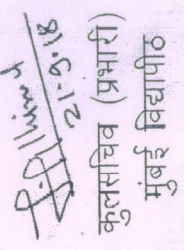 21-9-18
कुलसचिव (प्रभारी)
मुंबई विद्यापीठ